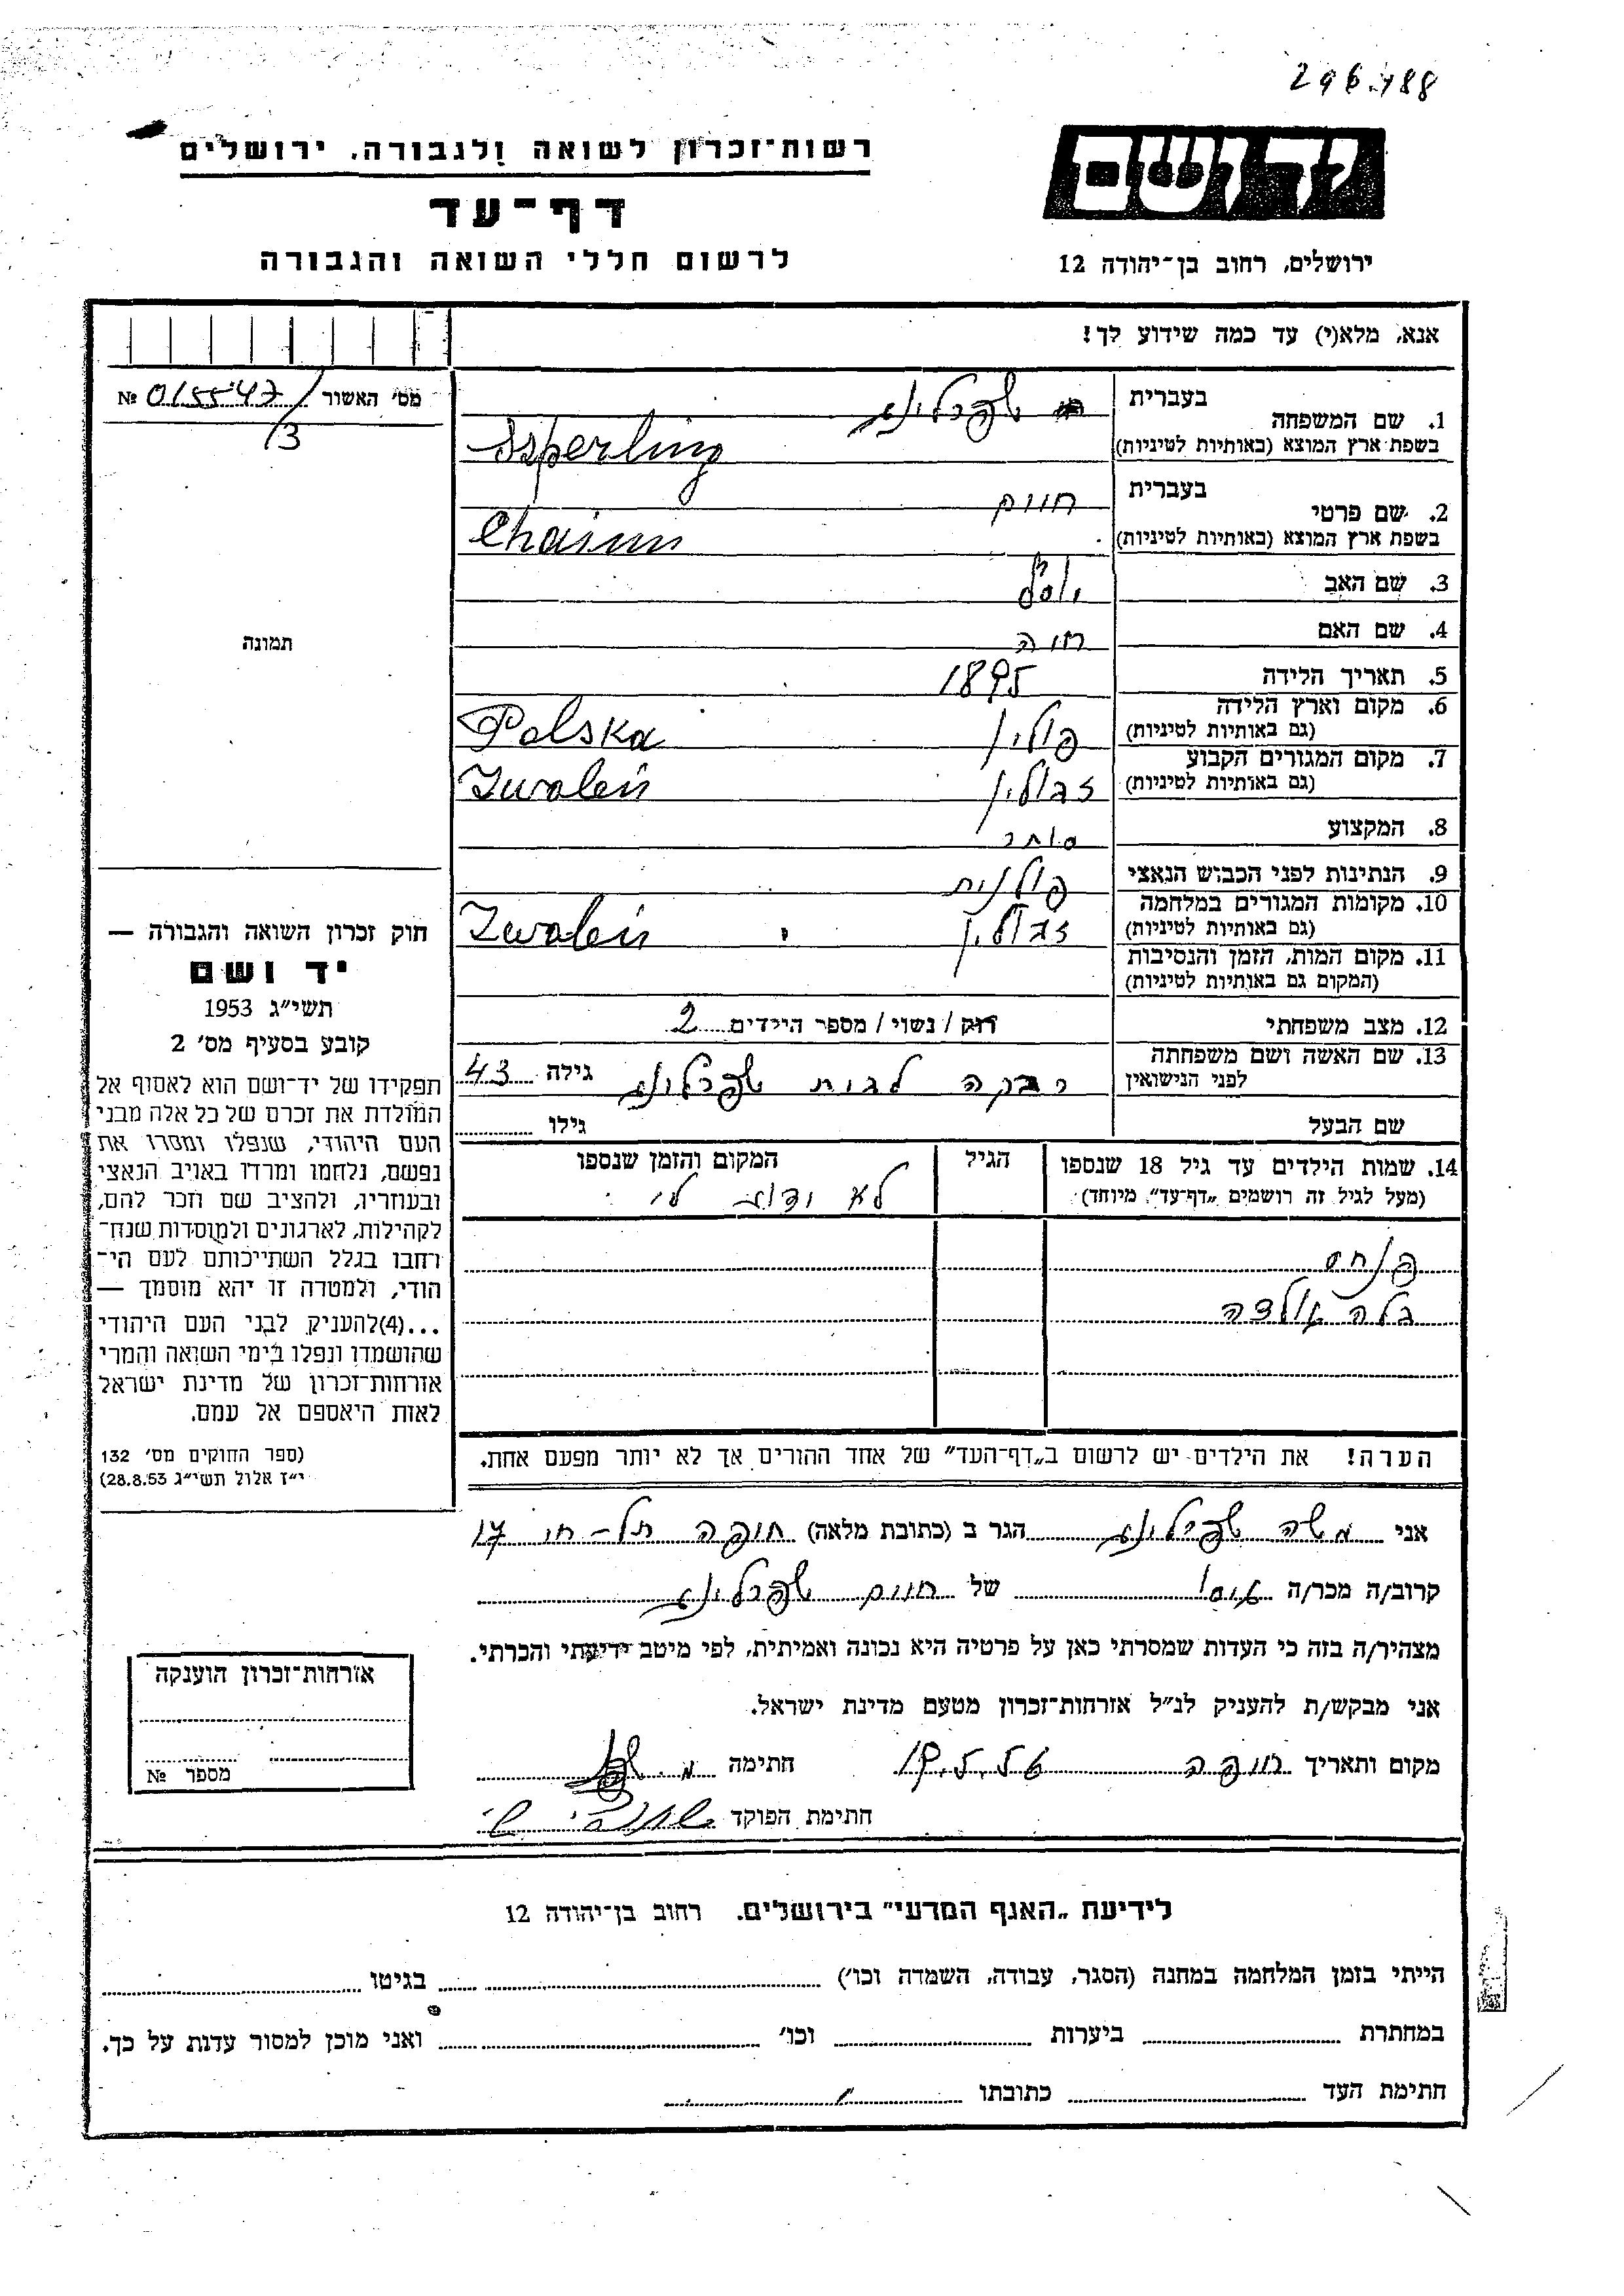 296.188
רשות־זכרון לשואה ולגבורה, ירושלים
יד ושם
דף־עד
לרשום חללי השואה והגבורה
ירושלים, רחוב בן־יהודה 12
אנא, מלא(י) עד כמה שידוע לך!
מס' האשור 015547/ №
13
1. שם המשפחה בעברית שפרלינג
בשפת ארץ המוצא (באותיות לטיניות) Szperling
2. שם פרטי בעברית חיים
בשפת ארץ המוצא (באותיות לטיניות) Chaim
3. שם האב יוסף
4. שם האם חוה
תמונה
5. תאריך הלידה 1895
6. מקום וארץ הלידה פולין Polska
(גם באותיות לטיניות)
7. מקום המגורים הקבוע זבולין Zwoleń
(גם באותיות לטיניות)
8. המקצוע סוחר
9. הנתינות לפני הכבוש הנאצי פולנית
10. מקומות המגורים במלחמה זבולין Zwoleń
(גם באותיות לטיניות)
11. מקום המות, הזמן והנסיבות
(המקום גם באותיות לטיניות)
12. מצב משפחתי רוק / נשוי / מספר הילדים 2
13. שם האשה ושם משפחתה רבקה לבית שפרלינג גילה 43
לפני הנישואין
שם הבעל גילו
14. שמות הילדים עד גיל 18 שנספו הגיל המקום והזמן שנספו
(מעל לגיל זה רושמים „דף־עד" מיוחד) לא ידוע לי
פנחס
בלה אלדה
הערה! את הילדים יש לרשום ב„דף־העד" של אחד ההורים אך לא יותר מפעם אחת.
חוק זכרון השואה והגבורה —
יד ושם
תשי"ג 1953
קובע בסעיף מס' 2
תפקידו של יד־ושם הוא לאסוף אל
המולדת את זכרם של כל אלה מבני
העם היהודי, שנפלו ומסרו את
נפשם, נלחמו ומרדו באויב הנאצי
ובעוזריו, ולהציב שם וזכר להם,
לקהילות, לארגונים ולמוסדות שנח־
רחבו בגלל השתייכותם לעם הי־
הודי, ולמטרה זו יהא מוסמך —
...(4)להעניק לבני העם היהודי
שהושמדו ונפלו בימי השואה והמרי
אזרחות־זכרון של מדינת ישראל
לאות היאספם אל עמם.
(ספר החוקים מס' 132
י"ז אלול תשי"ג 28.8.53)
אני משה שפרלינג הגר ב (כתובת מלאה) חיפה תל-חי 17
קרוב/ה מכר/ה של חיים שפרלינג
מצהיר/ה בזה כי העדות שמסרתי כאן על פרטיה היא נכונה ואמיתית, לפי מיטב ידיעתי והכרתי.
אני מבקש/ת להעניק לנ"ל אזרחות־זכרון מטעם מדינת ישראל.
מקום ותאריך חיפה חתימה
חתימת הפוקד
אזרחות־זכרון הוענקה
מספר №
לידיעת „האגף המדעי" בירושלים. רחוב בן־יהודה 12
הייתי בזמן המלחמה במחנה (הסגר, עבודה, השמדה וכו') בגיטו
במחתרת ביערות וכו' ואני מוכן למסור עדות על כך.
חתימת העד כתובתו